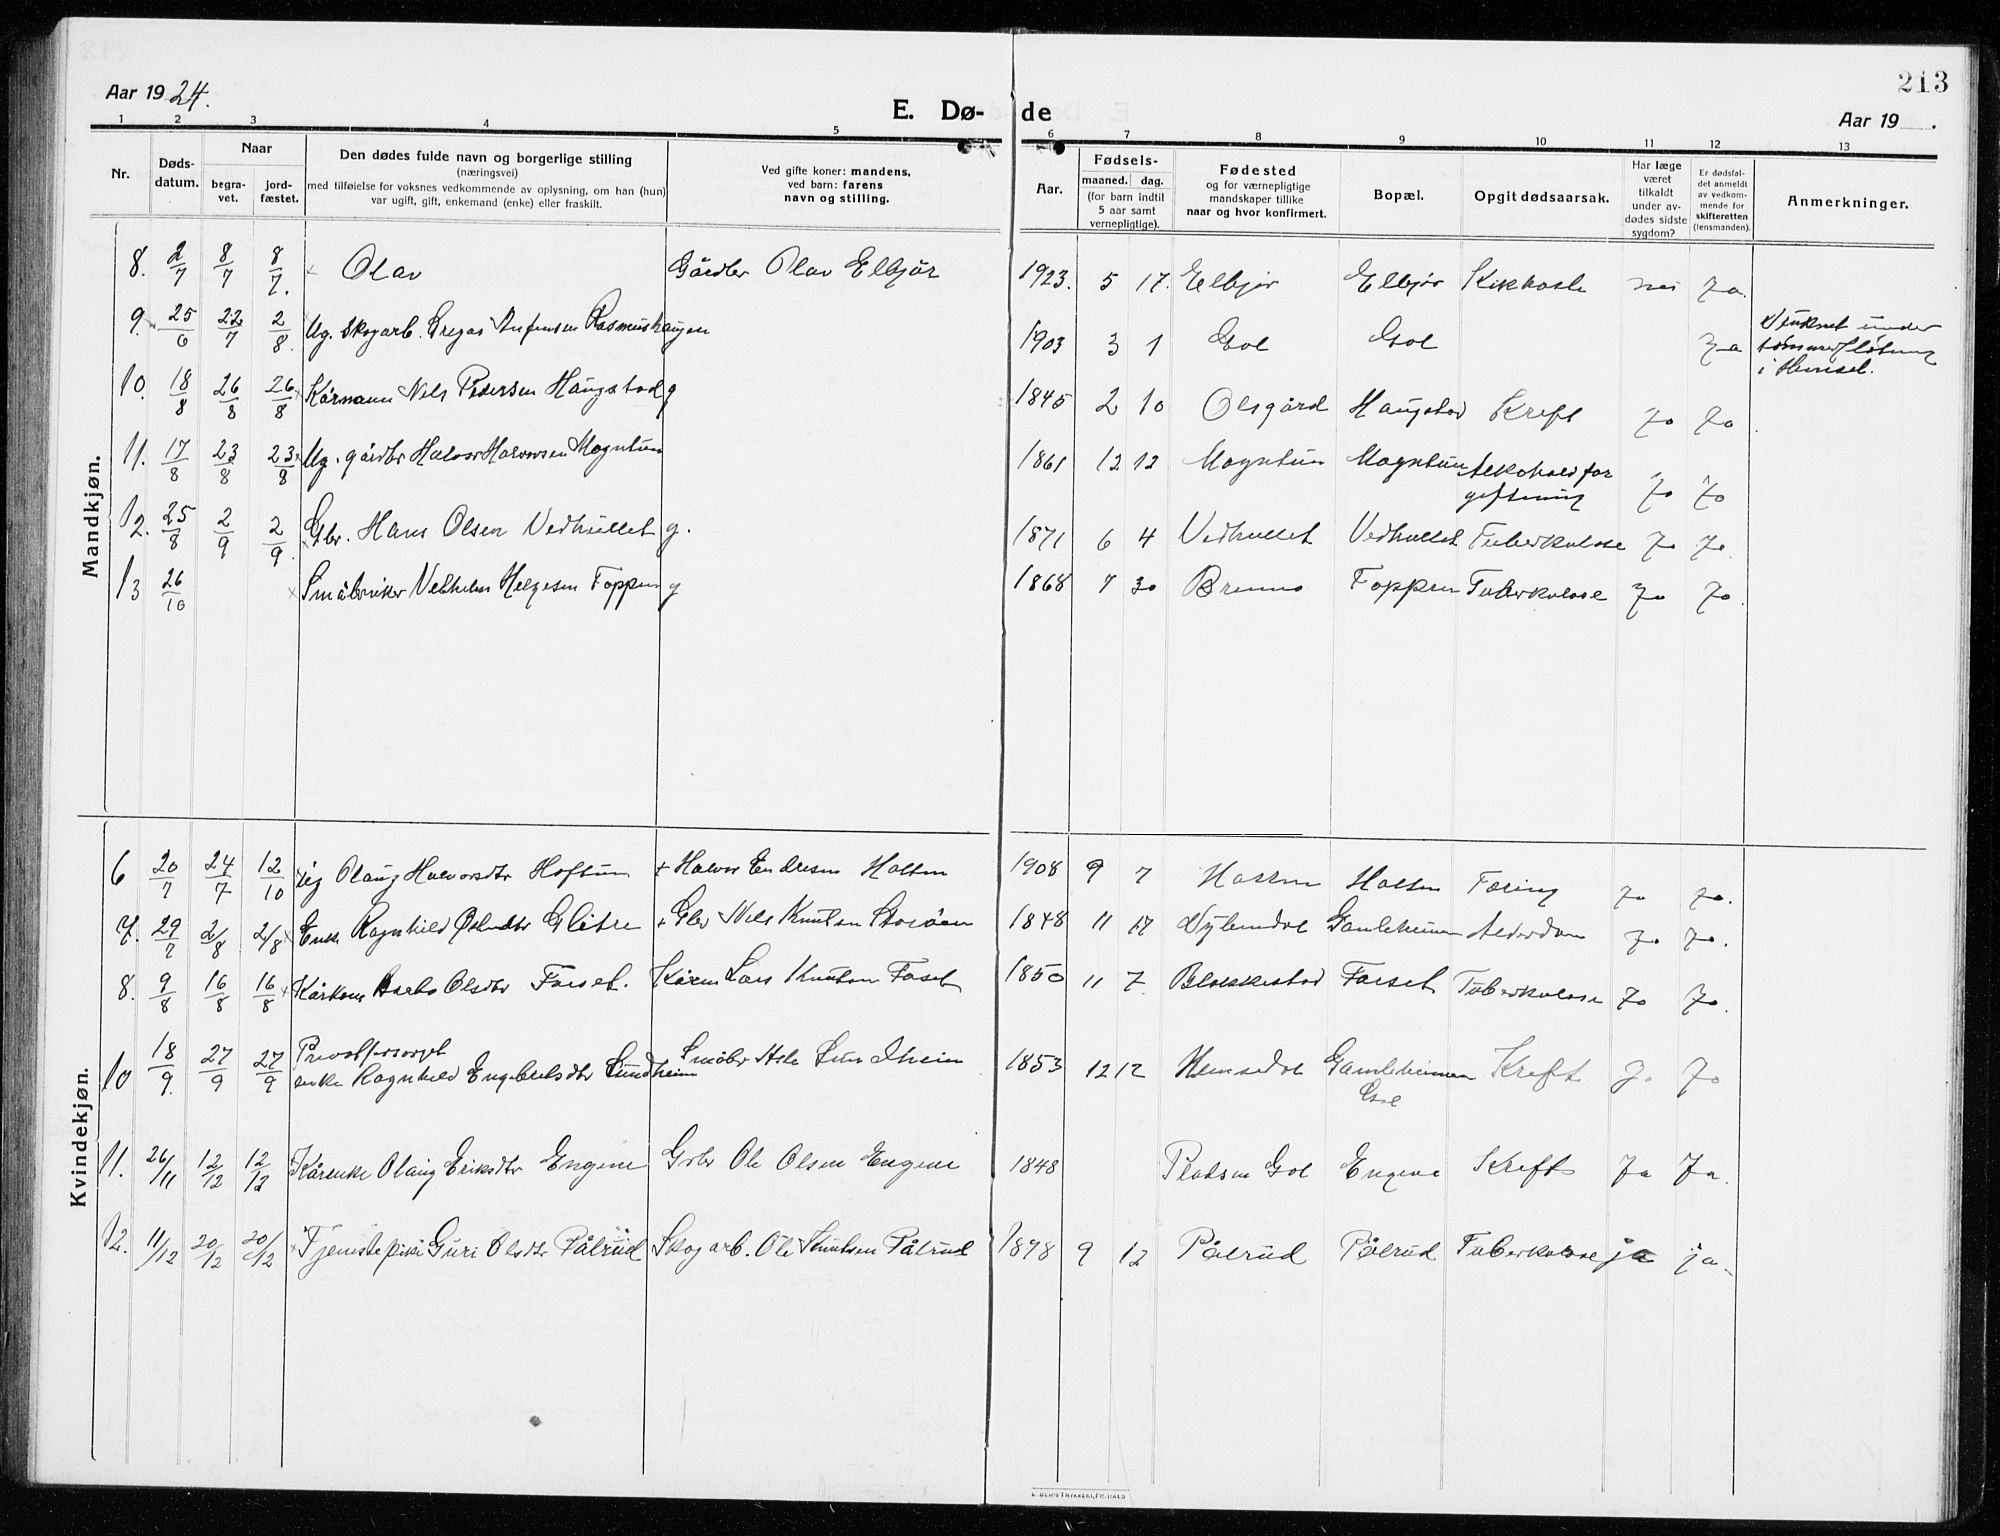 213
Aar 1924.
E. Dø-de
Aar 19 .
1 2 3 4 5 6 7 8 9 10 11 12 13
Nr.
Døds-
datum.
Naar
begra-
vet.
jord-
fæstet.
Den dødes fulde navn og borgerlige stilling
(næringsvei)
med tilføielse for voksnes vedkommende av oplysning, om han (hun)
var ugift, gift, enkemand (enke) eller fraskilt.
Ved gifte koner: mandens,
ved barn: farens
navn og stilling.
Aar.
Fødsels-
maaned. dag.
(for barn indtil
5 aar samt
vernepligtige).
Fødested
og for værnepligtige
mandskaper tillike
naar og hvor konfirmert.
Bopæl.
Opgit dødsaarsak.
Har læge
været
tilkaldt
under av-
dødes sidste
sygdom?
Er dødsfal-
det anmeldt
av vedkom-
mende for
skifteretten
(lensmanden).
Anmerkninger.
Mandkjøn.
8. 2/7 8/7 8/7. Olav Gårdbr Olav Elbjør 1923. 5 17. Elbjør Elbjør Kikhoste nei Ja.
9. 25/6 22/7 2/8. Ug. Skogarb. Rasmushaugen 1903 3 1 Gol Gol Ja
Druknet under
tømmerfløtning
i Hemsil.
10. 18/8 26/8 26/8 Kårmann Nils Pedersen Haugstad g 1845 2 10 Olsgård Haugstad Kreft Ja Ja
11. 17/8 23/8 23/8 Ug. gårdbr Halvor Halvorsen Magntun 1861 12 12 Magntun Magntun Alkoholfor
giftning Ja Ja
12. 25/8 2/9 2/9. Gbr. Hans Olsen Vedhullet g. 1871 6 4 Vedhullet Vedhullet Tuberkulose Ja Ja.
13 26/10 Småbruker Helgesen Foppen g 1868 7 30 Brenno Foppen Tuberkulose Ja Ja.
Kvindekjøn.
6 20/7 24/7 12/10 ug Olaug Halvorsdtr Hoftun + Halvor Endresen 1908 9 7 Ja Ja.
7. 29/7 2/8 2/8 Enke Ragnhild Glitre + Gbr Nils Knutsen 1848 11 17 Gamleheimen Alderdom Ja Ja.
8. 9/8 16/8 16/8 Kårkone Olsdtr Farset. Kårm Lars Knutsen Faset 1850 11 7. Farset Tuberkulose Ja Ja.
10 18/9. 27/9 27/9 Privatforsørget
enke Ragnhild Engebretsdtr Sundheim Småbr Asle Sundheim 1853 12 12 Hemsedal Gamleheimen
Gol Kreft J. Ja
11. 26/11 12/12 12/12 Kårenke Olaug Eriksdtr Engene Gbr Ole Olsen Engene 1848 Gol Engene Kreft Ja Ja.
12. 11/12 20/12 20/12 Tjenestepike Guri Olsdtr Pålrud Skogarb. Ole Knutsen Pålrud 1898 9 12 Pålrud Pålrud Tuberkulose ja ja.